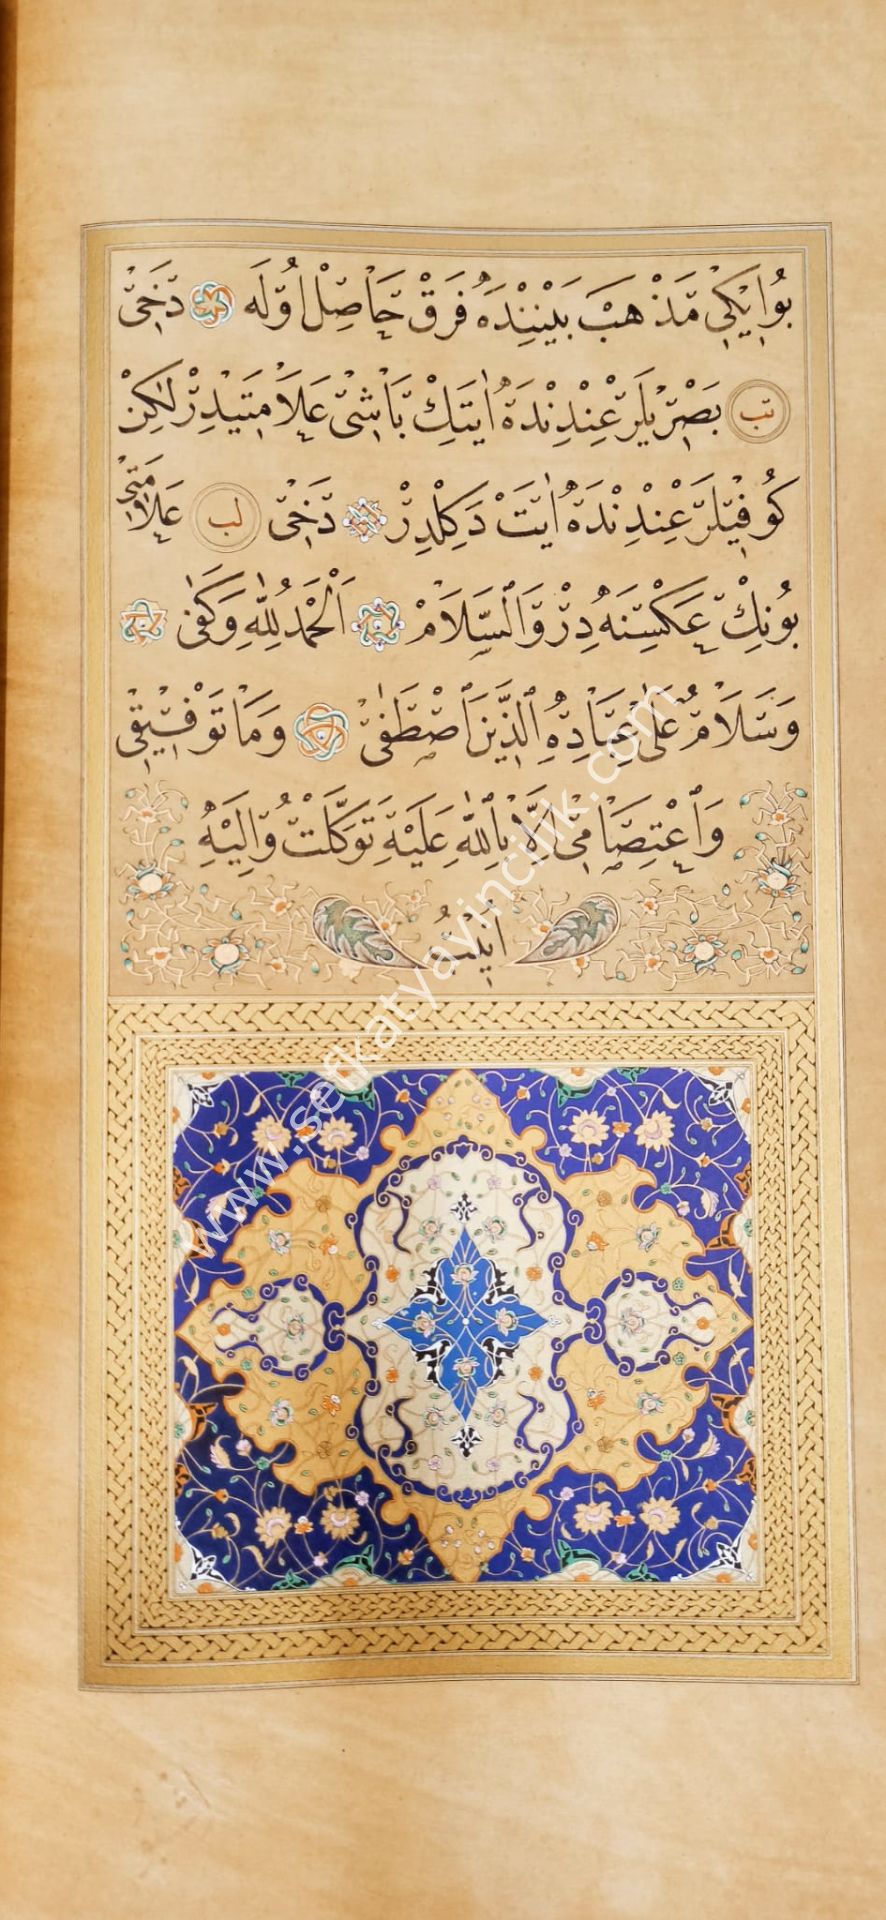 بُو اِيكِى مَذْهَبْ بَيْنِنْدَه فَرَقْ حَاصِلْ اُولَه دَخِى
تب بَصْرِيلَرْ عِنْدِنْدَه اٰيَتَكْ بَاشِى عَلَامَتِيدِرْ لٰكِنْ
كُوفِيلَرْ عِنْدِنْدَه اٰيَتْ دَكِلْدِرْ دَخِى لب عَلَامَتِى
بُونِكْ عَكْسِنَه دِرْ وَالسَّلَامْ اَلْحَمْدُ لِلّٰهِ وَكَفٰى
وَسَلَامٌ عَلٰى عِبَادِهِ الَّذِينَ اصْطَفٰى وَمَا تَوْفِيقِى
وَاعْتِصَامِى اِلَّا بِاللّٰهِ عَلَيْهِ تَوَكَّلْتُ وَاِلَيْهِ
اُنِيْبُ
www.sefkatyayincilik.com